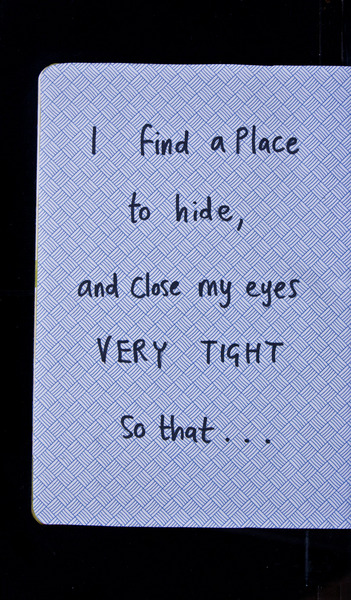 I find a Place
to hide,
and close my eyes
VERY TIGHT
So that...